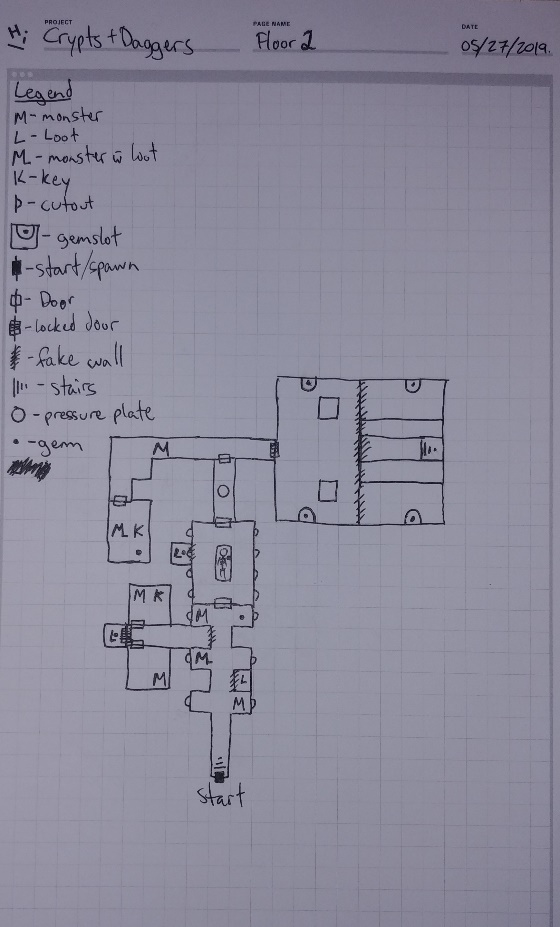 Hi
PROJECT
Crypts + Daggers
PAGE NAME
Floor 2
DATE
05/27/2019.
Legend
M - monster
L - Loot
M - monster w̄ loot
K - key
D - cutout
- gemslot
- start/spawn
- Door
- locked door
- fake wall
- stairs
O - pressure plate
• - gem
M
M K
M K
M
M
M
L
M
Start